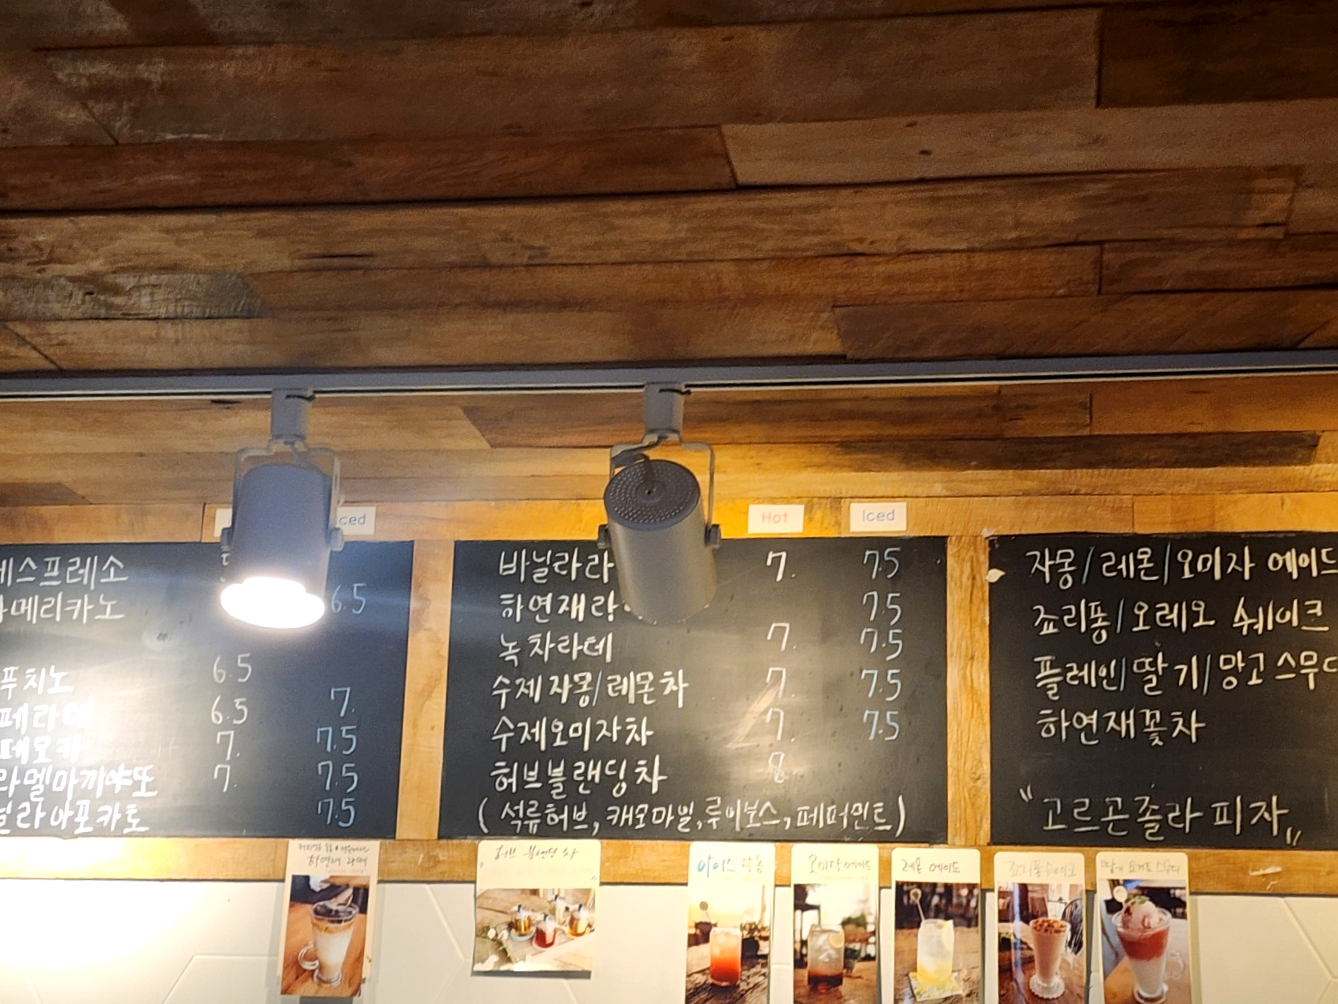 Iced
Hot Iced
에스프레소
아메리카노 6.5
푸치노 6.5
페라떼 6.5 7.
페모카 7. 7.5
라멜마끼야또 7. 7.5
닐라아포카토 7.5
바닐라라 7. 7.5
하연재라 7.5
녹차라떼 7. 7.5
수제자몽/레몬차 7. 7.5
수제오미자차 7. 7.5
허브블랜딩차 8.
(석류허브, 캐모마일, 루이보스, 페퍼민트)
자몽/레몬/오미자 에이드
죠리퐁/오레오 쉐이크
플레인/딸기/망고스무디
하연재꽃차
"고르곤졸라 피자"
하연재 라떼
허브 블랜딩 차
아이스 자몽
오미자에이드
레몬 에이드
죠리퐁쉐이크
딸기 요거트 스무디